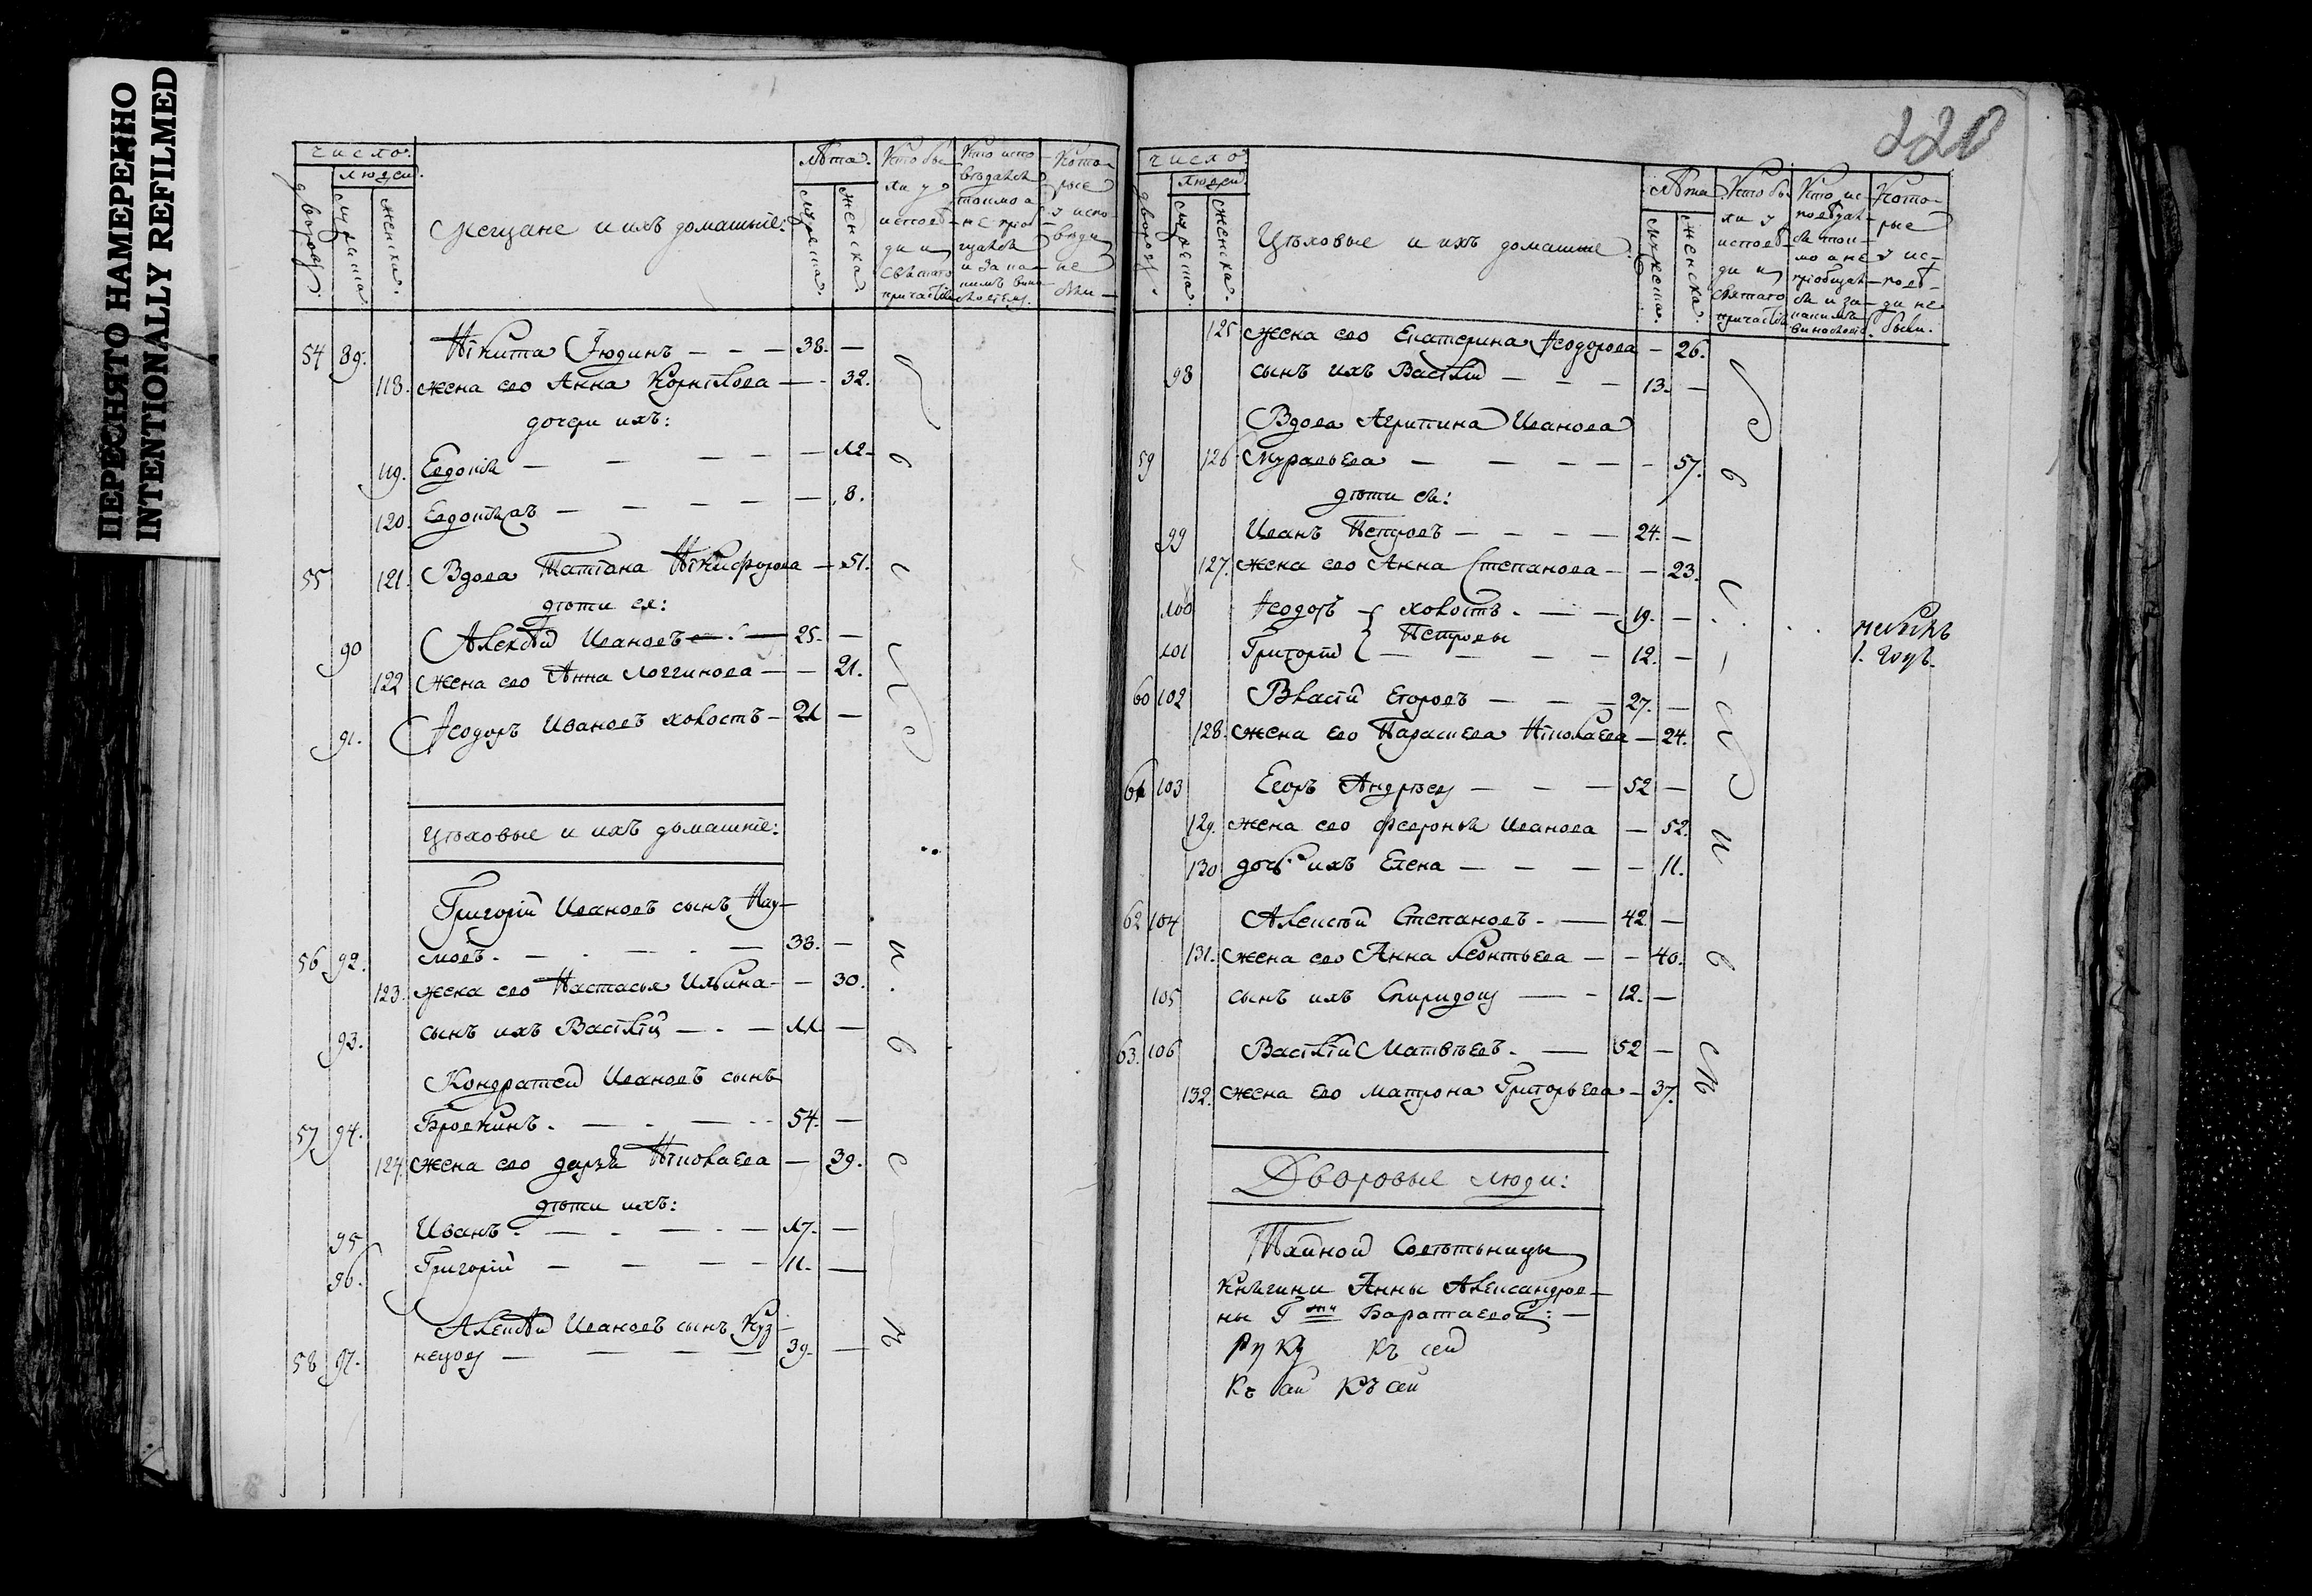 ПЕРЕСНЯТО НАМЕРЕННО
INTENTIONALLY REFILMED
число.
людей.
дворовъ.
мужеска.
женска.
Мещане и ихъ домашнїе.
Лѣта.
мужеска.
женска.
Кто бы
ли у
исповѣ
ди и
святаго
причастїя
Кто испо
вѣдался
токмо а
не прїоб
щался
и за ка
кимъ вино
словіемъ.
Кото
рые
у испо
вѣди
не
были
54 89. Нїкита Юдинъ — — — 38. —
118. жена его Анна Корнїлова — — 32.
дочери ихъ:
119. Евдокїя — — — — — 12.
120. — — — — — 8.
55 121. Вдова Татїана Нїкифорова — 51.
дѣти ея:
90 Алексѣй Ивановъ — . — 25. —
122 жена его Анна Логгинова — — 21.
91. Ѳеодоръ Ивановъ холостъ — 21 —
Цѣховые и ихъ домашнїе:
Григорїй Ивановъ сынъ Нау-
56 92. мовъ. — . — . — 38. —
123. жена его Настасья Ильина — — 30.
93. сынъ ихъ Васїлїй — . — 11. —
Кондратей Ивановъ сынъ
57 94. Бровкинъ. — . — . . 54. —
124. жена его дарья Нїколаева — 39.
дѣти ихъ:
95 Иванъ. — . — . — 17. —
96. Григорїй — — — — 11. —
Алексѣй Ивановъ сынъ Куз-
58 97. нецовъ — — — — 39. —
220
число
людей
дворовъ.
мужеска.
женска.
Цѣховые и ихъ домашнїе
Лѣта
мужеска.
женска.
Кто бы
ли у
исповѣ
ди и
святаго
причастїя
Кто ис
повѣдал
ся ток
мо а не
прїобщал
ся и за
какимъ
винословіе.
Кото
рые
у ис
повѣ
ди не
были.
125 жена его Екатерина Ѳеодорова — 26.
98 сынъ ихъ Васїлїй — — — 13. —
Вдова Агрипина Иванова
59 126 Муравьева — — — — — 57.
дѣти ея:
99 Иванъ Петровъ — — — — 24. —
127. жена его Анна Степанова — — 23.
100 Ѳеодоръ { холостъ. — — 19. —
101 Григорїй { Петровы — — 12. —
60 102 Власїй Егоровъ — — — 27. —
128. жена его Параскева Нїколаева — 24.
61 103 Егоръ Андрѣевъ — — — 52 —
129. жена его Ѳевронья Иванова — 52.
130 дочь ихъ Елена — — — — 11.
62 104 Алексѣй Степановъ. — 42 —
131. жена его Анна Леонтьева — — 40.
105 сынъ ихъ Спиридонъ — — 12. —
63. 106 Васїлїй Матвѣевъ. — 52 —
132. жена его Матрона Григорьева — 37.
Дворовые люди:
Тайной Совѣтницы
Княгини Анны Александров-
ны Г жи Баратаевой: —
къ сей
къ сей